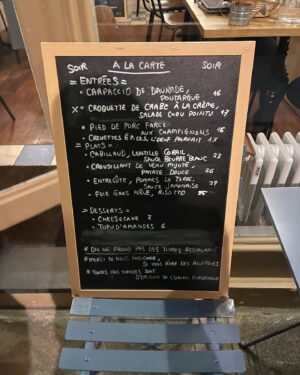 SOIR À LA CARTE SOIR
= ENTRÉES =
• CARPACCIO DE DAURADE, 16
POUTARGUE
X • CROQUETTE DE CRABE À LA CRÈME,
SALADE CHOU POINTU 17
• PIED DE PORC FARCI
AUX CHAMPIGNONS 16
• CREVETTES ÉPICES, L'OEUF PARFAIT 17
= PLATS =
• CABILLAUD, LENTILLE CORAIL
SAUCE BEURRE BLANC 23
• CROUSTILLANT DE VEAU MIJOTÉ,
PATATE DOUCE 26
• ENTRECÔTE, POMMES DE TERRE,
SAUCE JAPONAISE 29
• FOIE GRAS POÊLÉ, RISOTTO 35
= DESSERTS =
• CHEESECAKE
• TOFU D'AMANDES 6
# ON NE PREND PAS DES TITRES RESTAURANT
# MERCI DE NOUS INFORMER,
SI VOUS AVEZ DES ALLERGIES
# TOUTES NOS VIANDES SONT
D'ORIGINE DE L'UNION EUROPÉENNE